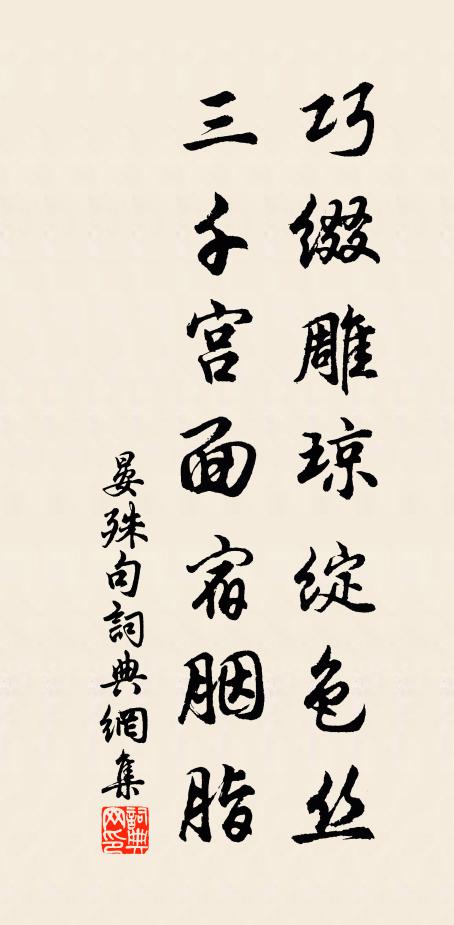 巧缀雕琼绽色丝
三千宫面宿胭脂
晏殊句詞典網集
詞典网印